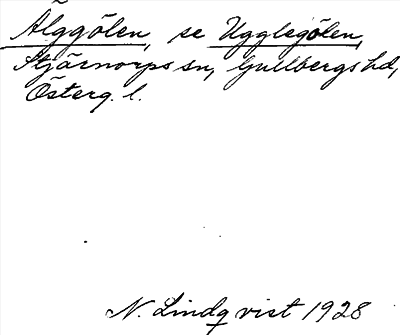 Älggölen, se Ugglegölen,
Stjärnorps sn, Gullbergs hd,
Österg. l.
N. Lindqvist 1928